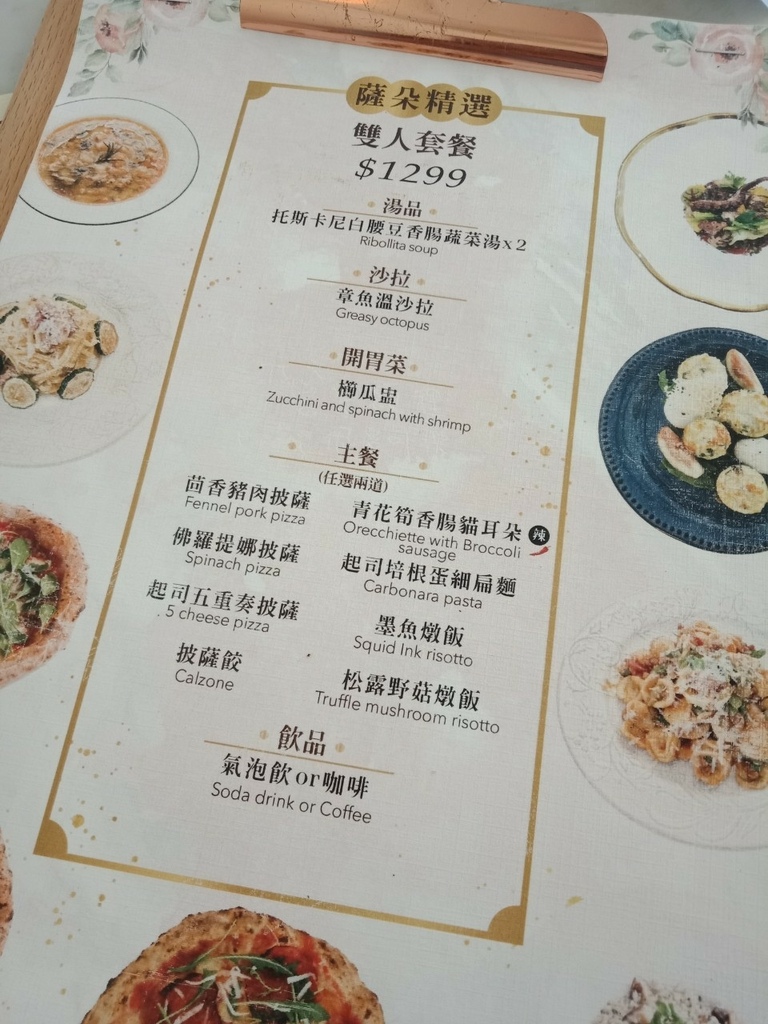 薩朵精選
雙人套餐
$1299
湯品
托斯卡尼白腰豆香腸蔬菜湯x2
Ribollita soup
沙拉
章魚溫沙拉
Greasy octopus
開胃菜
櫛瓜盅
Zucchini and spinach with shrimp
主餐
(任選兩道)
茴香豬肉披薩
Fennel pork pizza
佛羅提娜披薩
Spinach pizza
起司五重奏披薩
5 cheese pizza
披薩餃
Calzone
青花筍香腸貓耳朵 辣
Orecchiette with Broccoli
sausage
起司培根蛋細扁麵
Carbonara pasta
墨魚燉飯
Squid Ink risotto
松露野菇燉飯
Truffle mushroom risotto
飲品
氣泡飲or咖啡
Soda drink or Coffee